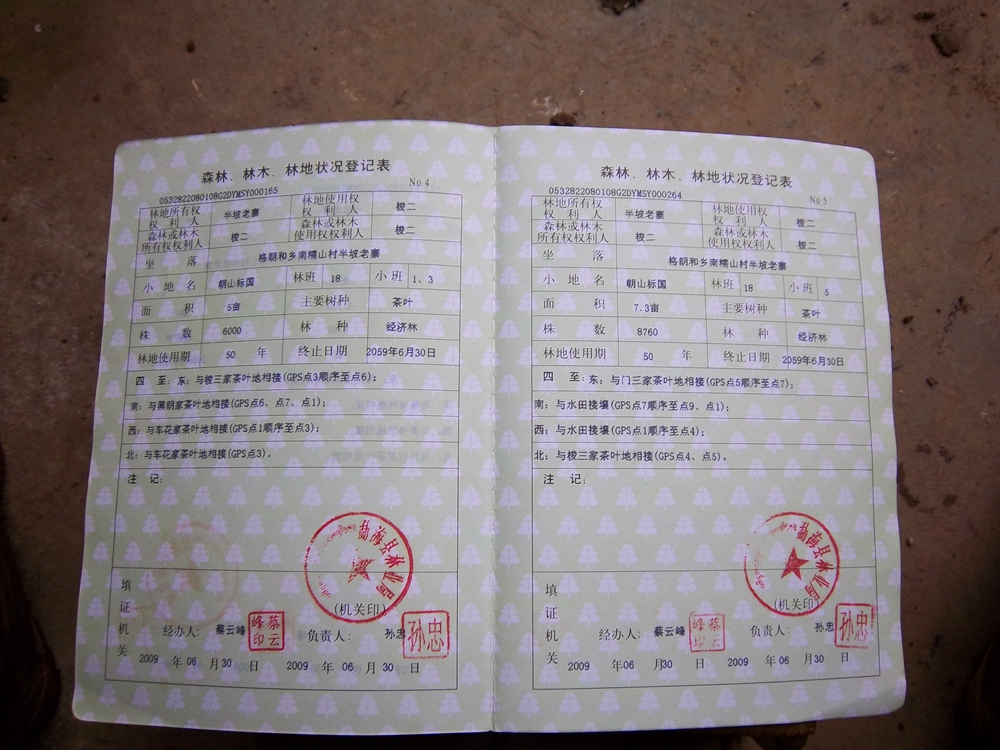 森林、林木、林地状况登记表
No 4
0532822080108G2DYMSY000165
林地所有权权利人 半坡老寨 林地使用权权利人 梭二
森林或林木所有权权利人 梭二 森林或林木使用权权利人 梭二
坐落 格朗和乡南糯山村半坡老寨
小地名 朝山标国 林班 18 小班 1、3
面积 5亩 主要树种 茶叶
株数 6000 林种 经济林
林地使用期 50 年 终止日期 2059年6月30日
四至:东:与梭三家茶叶地相接(GPS点3顺序至点6);
南:与黑朗家茶叶地相接(GPS点6、点7、点1);
西:与车花家茶叶地相接(GPS点1顺序至点3);
北:与车花家茶叶地相接(GPS点3)。
注记:
勐海县林业局
(机关印)
填证机关
经办人: 蔡云峰 蔡云峰印 负责人: 孙忠 孙忠
2009 年 06 月 30 日 2009 年 06 月 30 日
森林、林木、林地状况登记表
No 5
0532822080108G2DYMSY000264
林地所有权权利人 半坡老寨 林地使用权权利人 梭二
森林或林木所有权权利人 梭二 森林或林木使用权权利人 梭二
坐落 格朗和乡南糯山村半坡老寨
小地名 朝山标国 林班 18 小班 5
面积 7.3亩 主要树种 茶叶
株数 8760 林种 经济林
林地使用期 50 年 终止日期 2059年6月30日
四至:东:与门三家茶叶地相接(GPS点5顺序至点7);
南:与水田接壤(GPS点7顺序至点9、点1);
西:与水田接壤(GPS点1顺序至点4);
北:与梭三家茶叶地相接(GPS点4、点5)。
注记:
勐海县林业局
(机关印)
填证机关
经办人: 蔡云峰 蔡云峰印 负责人: 孙忠 孙忠
2009 年 06 月 30 日 2009 年 06 月 30 日